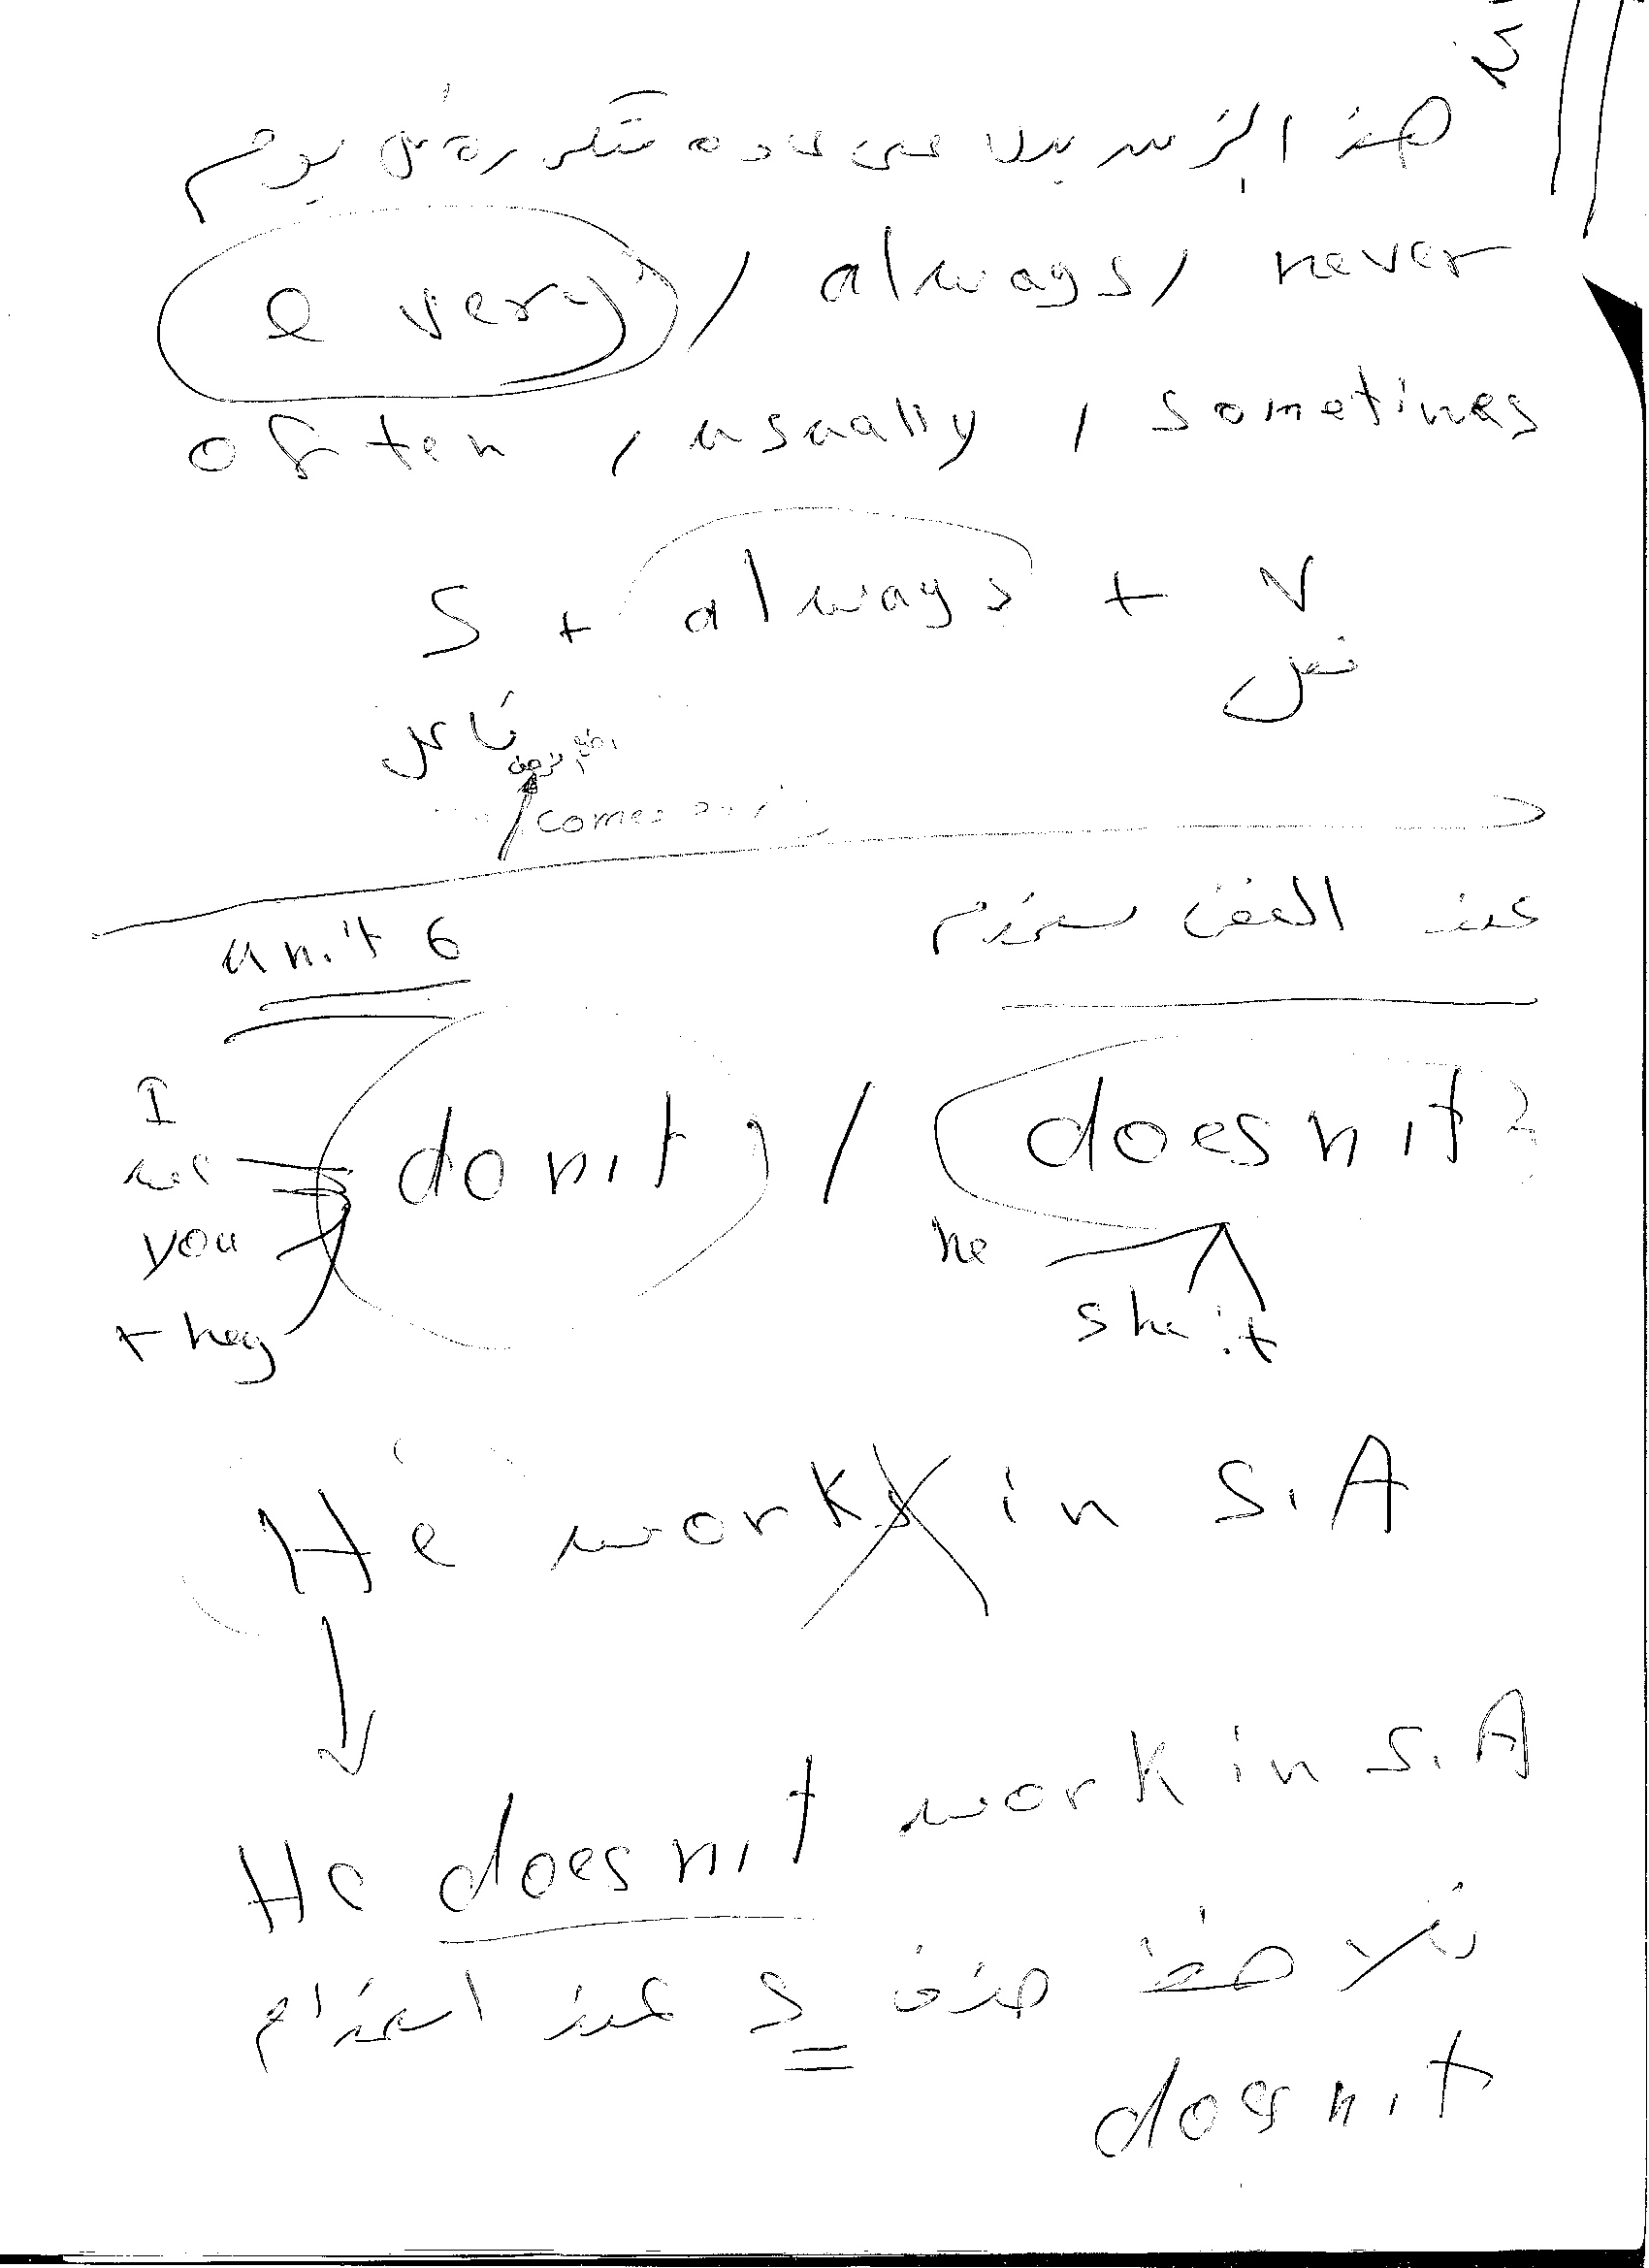 هذا الزمن يدل على عادة متكررة كل يوم
every / always / never
often / usually / sometimes
S + always + V
فاعل فعل
comes
عند النفي نستخدم
unit 6
I
we
you
they
don't / doesn't
he
she it
He works in S.A
He doesn't work in S.A
نلاحظ حذف s عند استخدام
doesn't